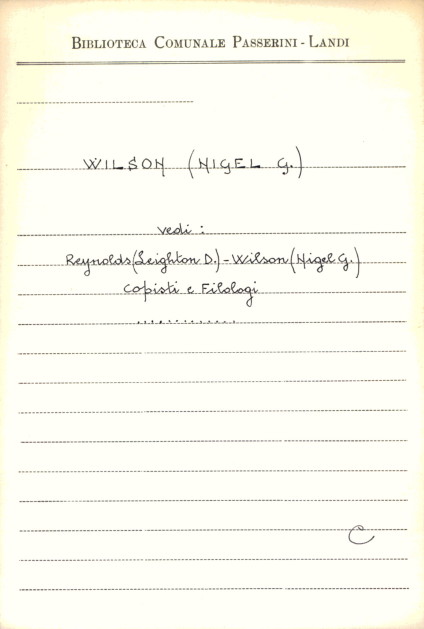 BIBLIOTECA COMUNALE PASSERINI - LANDI
WILSON (NIGEL G.)
vedi :
Reynolds (Leighton D.) - Wilson (Nigel G.)
Copisti e Filologi
.............
C